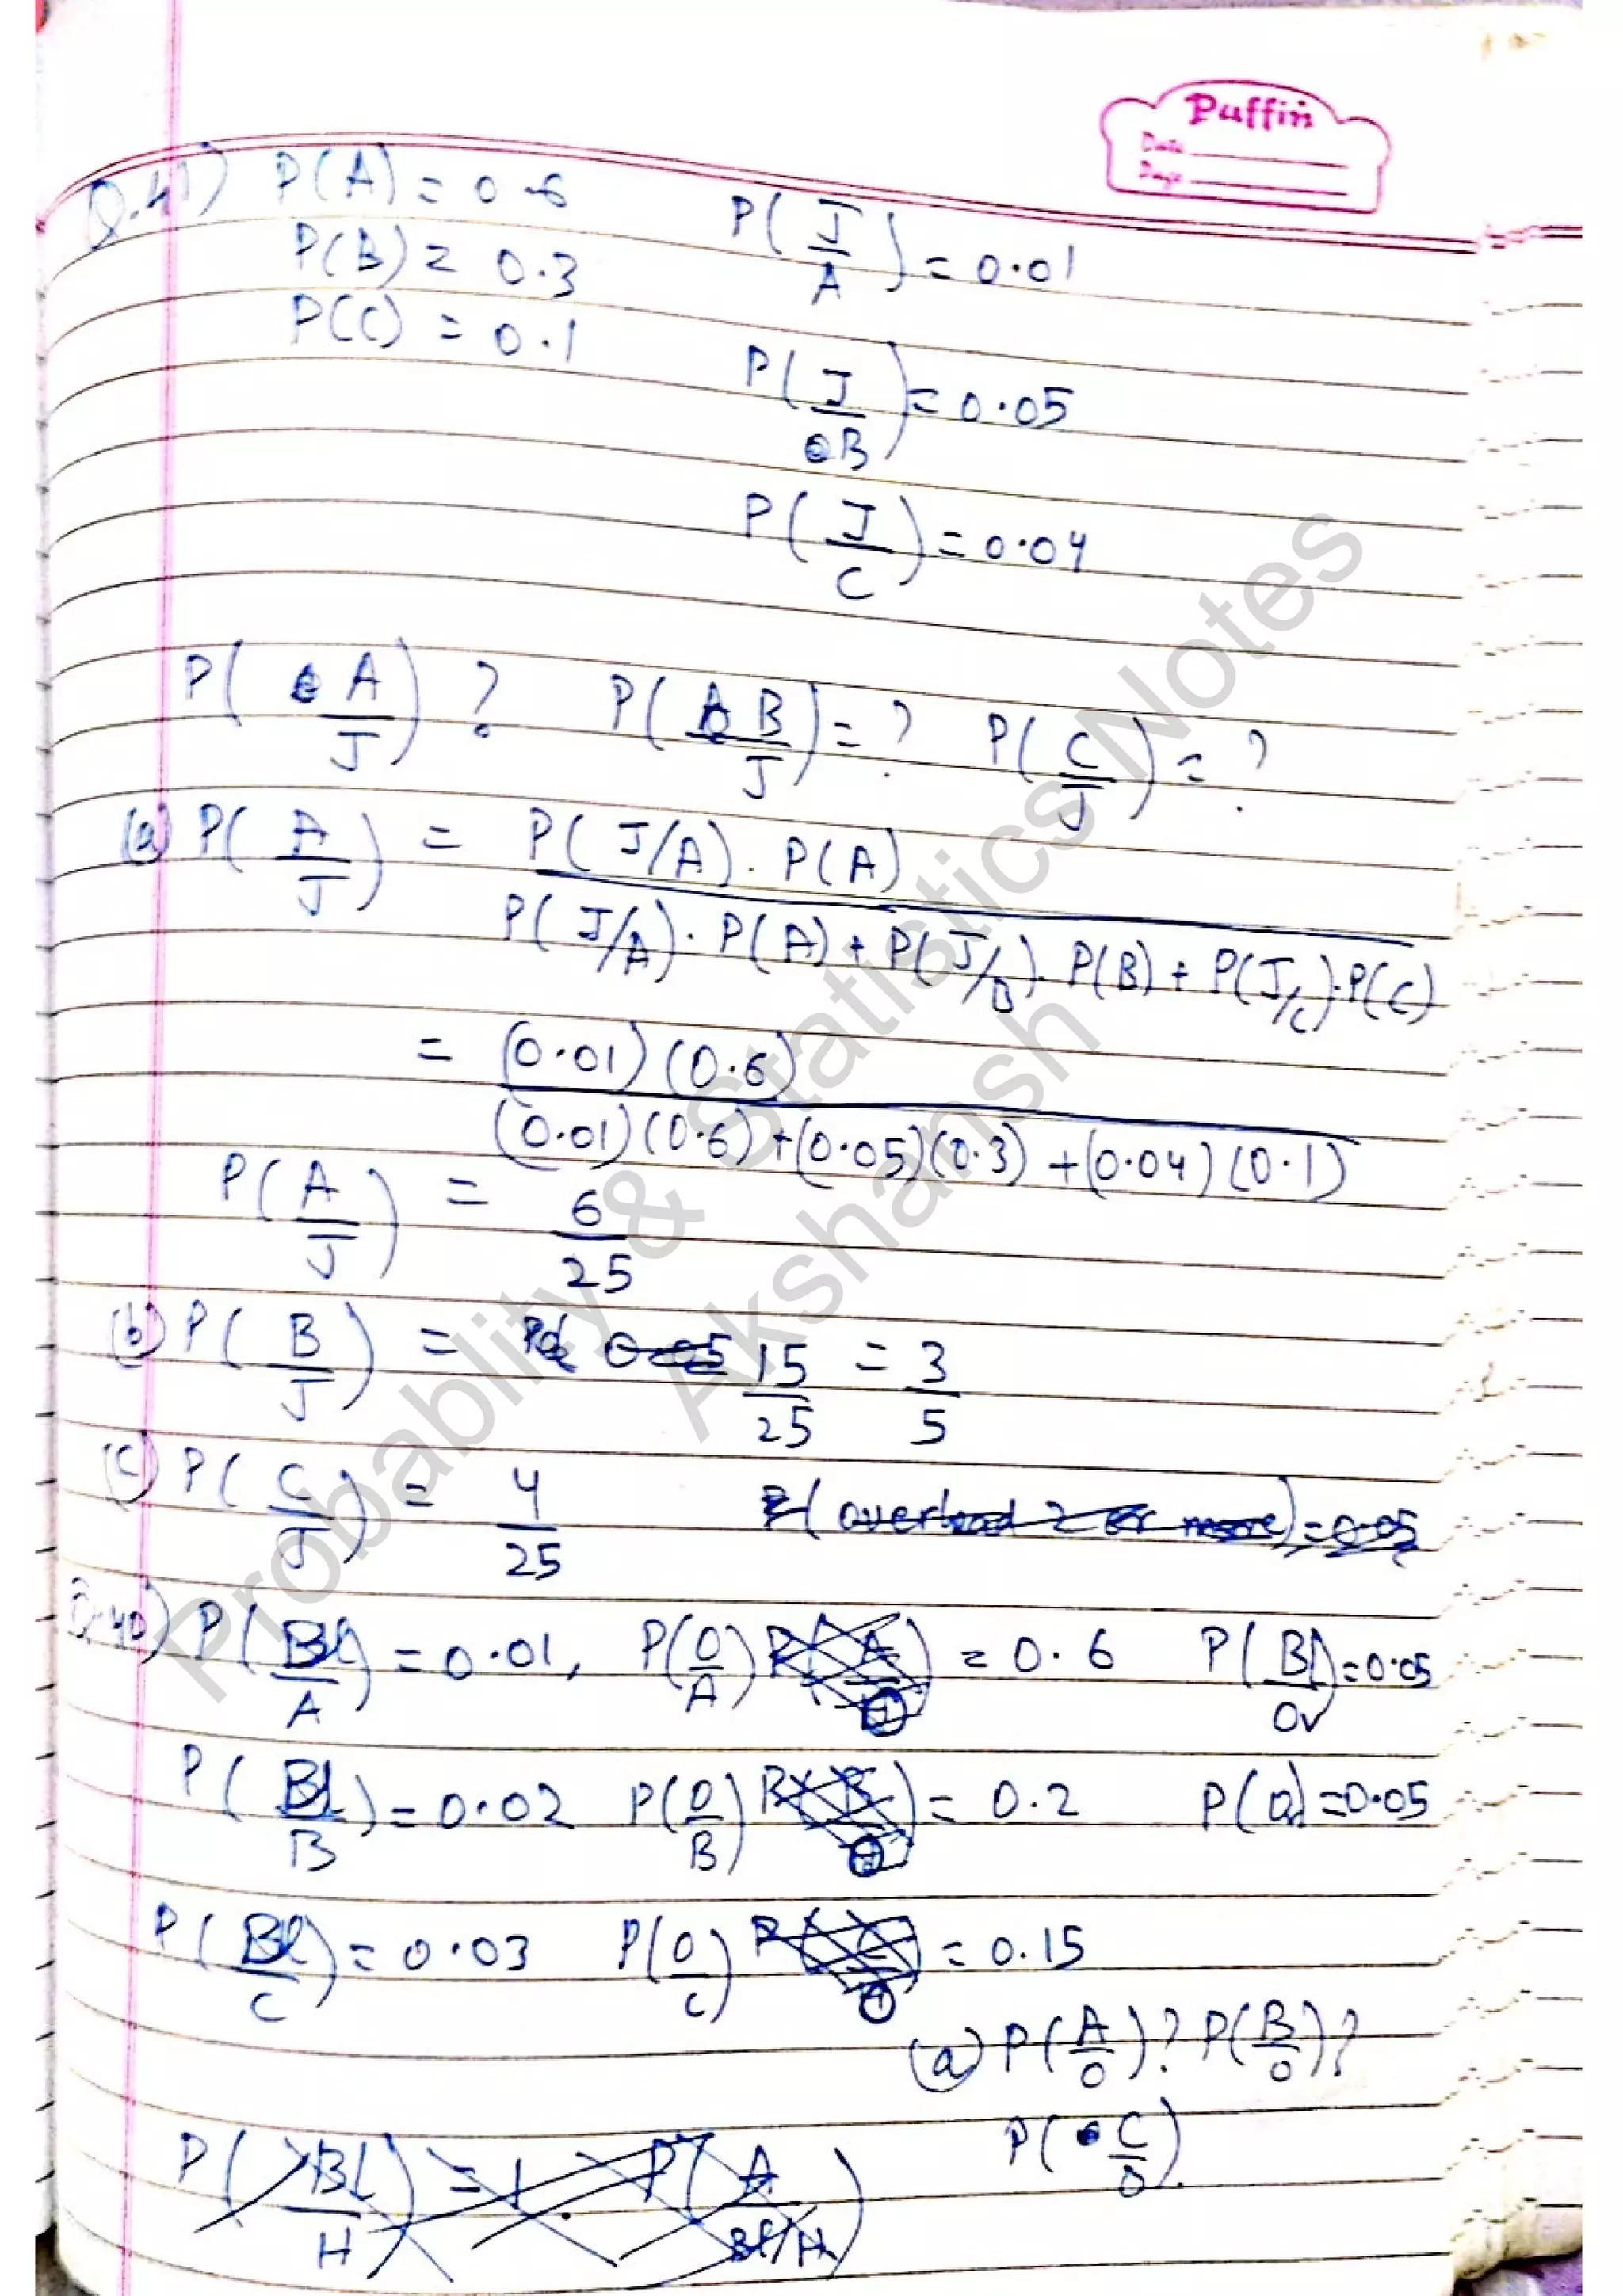 Puffin
Date
Page
Q.41) P(A) = 0.6 P(J/A) = 0.01
P(B) = 0.3
P(C) = 0.1 P(J/B) = 0.05
P(J/C) = 0.04
P(A/J) ? P(B/J) = ? P(C/J) = ?
(a) P(A/J) = P(J/A) . P(A)
P(J/A) . P(A) + P(J/B) . P(B) + P(J/C) . P(C)
= (0.01) (0.6)
(0.01) (0.6) + (0.05) (0.3) + (0.04) (0.1)
P(A/J) = 6/25
(b) P(B/J) = 15/25 = 3/5
(c) P(C/J) = 4/25 P(overload 2 or more) = 0.05
Q.40) P(Bl/A) = 0.01, P(O/A) = 0.6 P(Bl/Ov) = 0.05
P(Bl/B) = 0.02 P(O/B) = 0.2 P(O) = 0.05
P(Bl/C) = 0.03 P(O/C) = 0.15
(a) P(A/O) ? P(B/O) ?
P(C/O)
P(Bl/H) = 1 . P(A/Bl/H)
Probablity & Statistics Notes
Akshansh